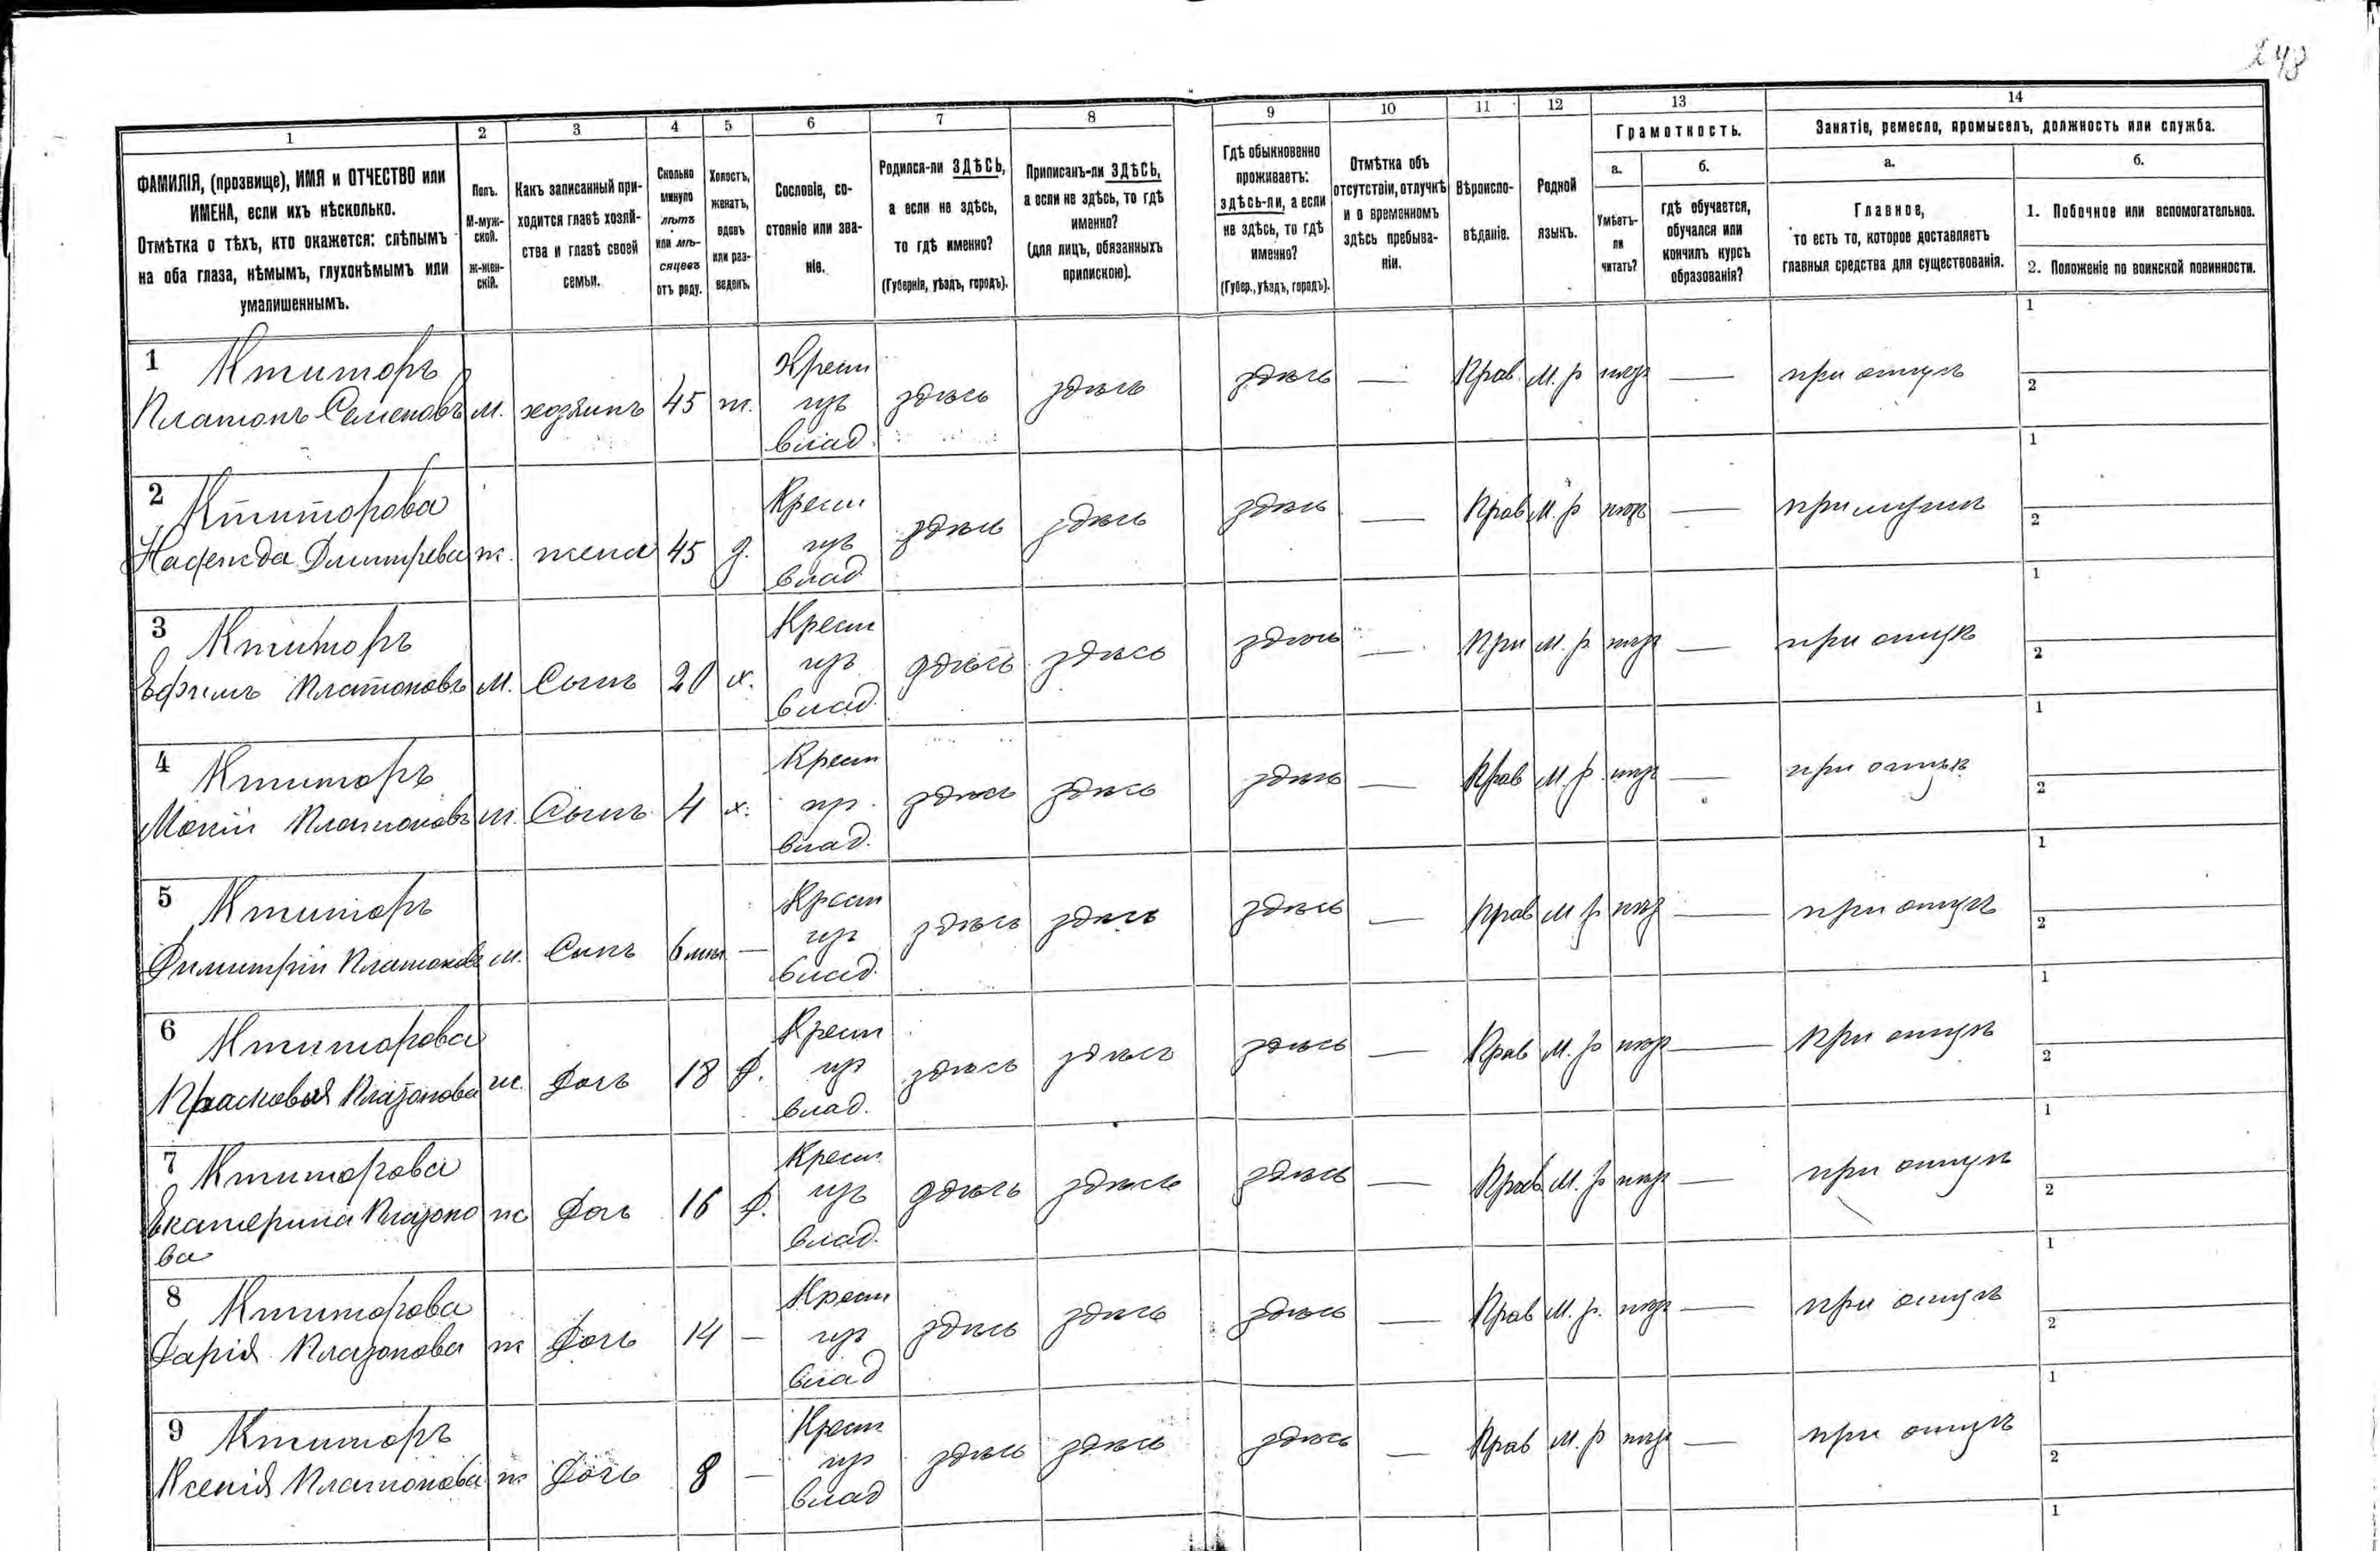 248
1 2 3 4 5 6 7 8 9 10 11 12 13 14
ФАМИЛІЯ, (прозвище), ИМЯ и ОТЧЕСТВО или
ИМЕНА, если ихъ нѣсколько.
Отмѣтка о тѣхъ, кто окажется: слѣпымъ
на оба глаза, нѣмымъ, глухонѣмымъ или
умалишеннымъ.
Полъ.
М-муж-
ской.
ж-жен-
скій.
Какъ записанный при-
ходится главѣ хозяй-
ства и главѣ своей
семьи.
Сколько
минуло
лѣтъ
или мѣ-
сяцевъ
отъ роду.
Холостъ,
женатъ,
вдовъ
или раз-
веденъ.
Сословіе, со-
стояніе или зва-
ніе.
Родился-ли ЗДѢСЬ,
а если не здѣсь,
то гдѣ именно?
(Губернія, уѣздъ, городъ).
Приписанъ-ли ЗДѢСЬ,
а если не здѣсь, то гдѣ
именно?
(для лицъ, обязанныхъ
припискою).
Гдѣ обыкновенно
проживаетъ:
здѣсь-ли, а если
не здѣсь, то гдѣ
именно?
(Губер., уѣздъ, городъ).
Отмѣтка объ
отсутствіи, отлучкѣ
и о временномъ
здѣсь пребыва-
ніи.
Вѣроиспо-
вѣданіе.
Родной
языкъ.
Грамотность.
а.
Умѣетъ-
ли
читать?
б.
гдѣ обучается,
обучался или
кончилъ курсъ
образованія?
Занятіе, ремесло, промыселъ, должность или служба.
а.
Главное,
то есть то, которое доставляетъ
главныя средства для существованія.
б.
1. Побочное или вспомогательное.
2. Положеніе по воинской повинности.
1 Ктиторъ Крест 1
Платонъ Семеновъ м. хозяинъ 45 ж. изъ здѣсь здѣсь здѣсь — Прав. М. р — при отцѣ 2
влад.
2 Ктиторова Крест 1
Надежда Дмитрева ж. жена 45 з. изъ здѣсь здѣсь здѣсь — Прав М. р — при мужи 2
влад
3 Ктиторъ Крест 1
Ефимъ Платоновъ м. Сынъ 20 х. изъ здѣсь здѣсь здѣсь — При М. р. — при отцѣ 2
влад.
4 Ктиторъ Крест 1
Мокій Платоновъ м. Сынъ 4 х. из здѣсь здѣсь здѣсь — Прав М. р — при отцѣ 2
влад.
5 Ктиторъ Крест 1
Димитрій Платоновъ м. Сынъ 6 мѣс — изъ здѣсь здѣсь здѣсь — Прав М р — при отцѣ 2
влад.
6 Ктиторова Крест 1
Прасковья Платонова ж. Дочь 18 д. из здѣсь здѣсь здѣсь — Прав М. р — При отцѣ 2
влад.
7 Ктиторова Крест 1
Екатерина Платоно ж Доч 16 д. изъ здѣсь здѣсь здѣсь — Прав М. р — при отцѣ 2
ва влад.
8 Ктиторова Крест 1
Дарія Платонова ж Дочь 14 — изъ здѣсь здѣсь здѣсь — Прав М. р. — при отцѣ 2
влад
9 Ктиторъ Крест 1
Ксенія Платонова ж Дочь 8 — из здѣсь здѣсь здѣсь — Прав М. р — при отцѣ 2
влад
1